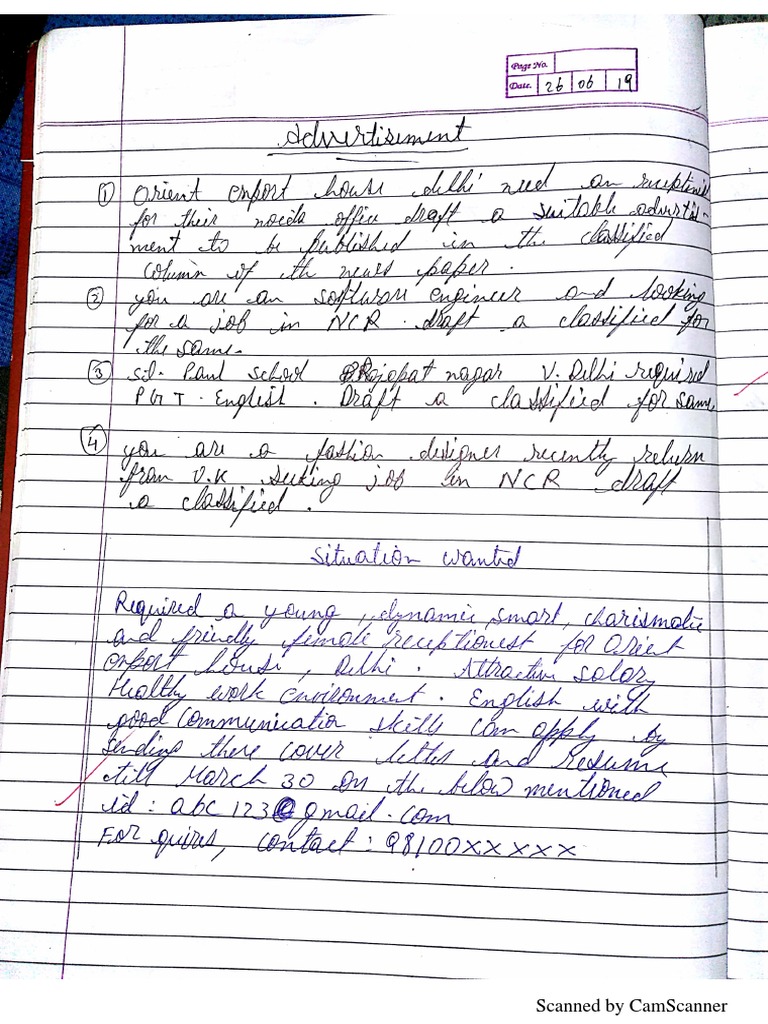 Page No.
Date. 26 06 19
Advertisement
① Orient export house delhi need an
for their needs office draft a suitable advertis-
ment to be published in the classified
column of th news paper.
② you are an software engineer and looking
for a job in NCR. draft a classified for
the same.
③ Paul school nagar V. Delhi required
P G T. English. Draft a classified for same.
④ you are a fashion designer recently return
from U.K seeking job in NCR draft
a classified.
Situation wanted
Required a young, dynamic, smart, charismatic
and friendly female receptionest for Orient
export house, Delhi. Attractive salary
Healthy work environment. English with
good communication skills can apply by
sending there cover letter and resume
till March 30 on the below mentioned
id: abc123@gmail.com
For quires, contact: 98100xxxxx
Scanned by CamScanner